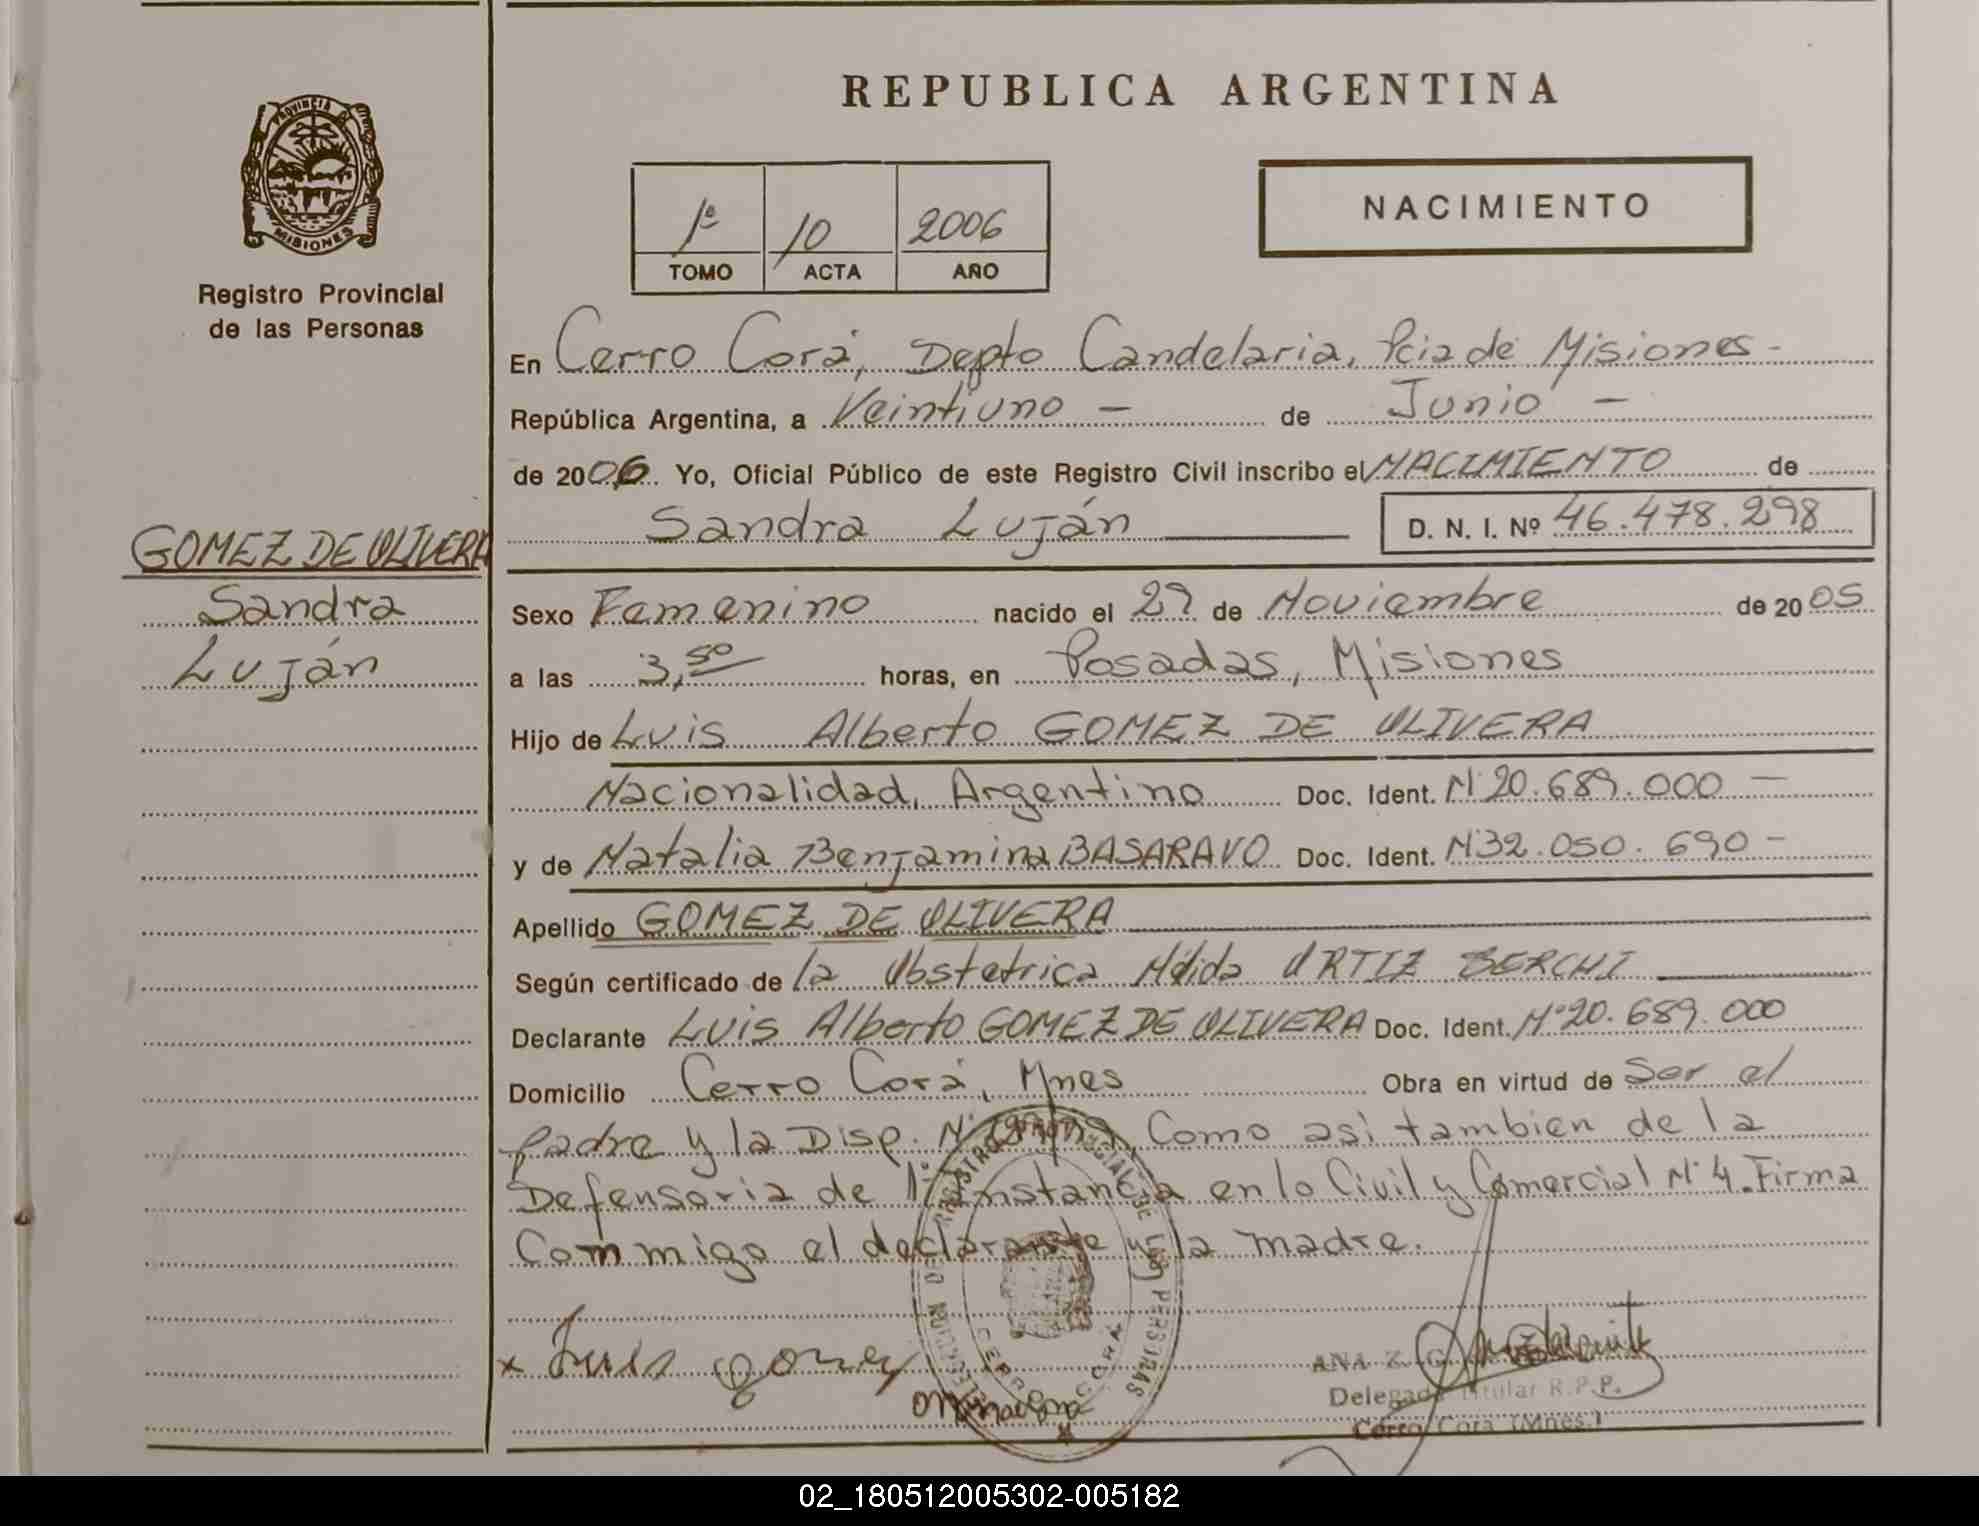 REPUBLICA ARGENTINA
PROVINCIA DE
MISIONES
Registro Provincial
de las Personas
1º 10 2006
TOMO ACTA AÑO
NACIMIENTO
En Cerro Corá, Depto Candelaria, Pcia de Misiones -
República Argentina, a Veintiuno - de Junio -
de 2006. Yo, Oficial Público de este Registro Civil inscribo el NACIMIENTO de
Sandra Luján D. N. I. Nº 46.478.298
GOMEZ DE OLIVERA
Sandra
Luján
Sexo Femenino nacido el 27 de Noviembre de 2005
a las 3,50 horas, en Posadas, Misiones
Hijo de Luis Alberto GOMEZ DE OLIVERA
Nacionalidad, Argentino Doc. Ident. Nº 20.689.000 -
y de Natalia Benjamina Doc. Ident. Nº 32.050.690 -
Apellido GOMEZ DE OLIVERA
Según certificado de la Obstetrica ORTIZ
Declarante Luis Alberto GOMEZ DE OLIVERA Doc. Ident. Nº 20.689.000
Domicilio Cerro Corá, Mnes Obra en virtud de Ser el
padre y la Disp. Nº Como asi tambien de la
Defensoria de 1º instancia en lo Civil y Comercial Nº 4. Firma
Commigo el declarante y la madre.
REGISTRO PROVINCIAL DE LAS PERSONAS
CERRO CORA
x Luis gomez
ANA Z. G
Delegada Titular R.P.P.
Cerro Corá (Mnes.)
02_180512005302-005182